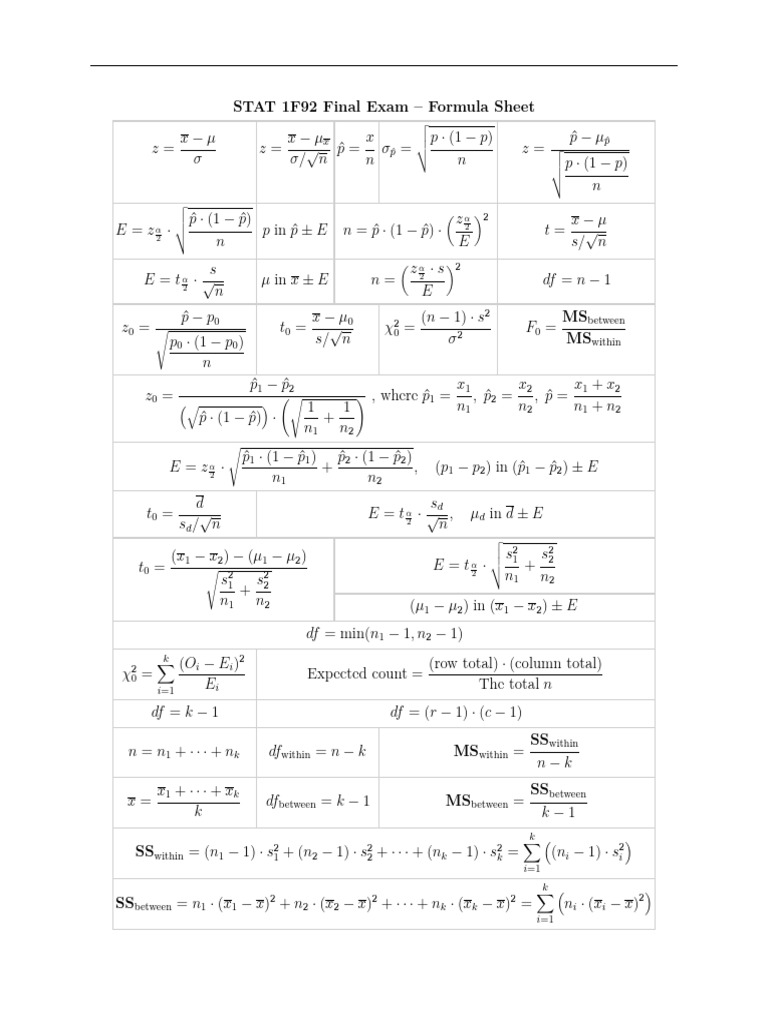 STAT 1F92 Final Exam – Formula Sheet
z = (x̅ − μ)/σ    z = (x̅ − μ_x̅)/(σ/√n)    p̂ = x/n    σ_p̂ = √(p · (1 − p)/n)    z = (p̂ − μ_p̂)/√(p · (1 − p)/n)
E = z_{α/2} · √(p̂ · (1 − p̂)/n)    p in p̂ ± E    n = p̂ · (1 − p̂) · (z_{α/2}/E)²    t = (x̅ − μ)/(s/√n)
E = t_{α/2} · s/√n    μ in x̅ ± E    n = (z_{α/2} · s/E)²    df = n − 1
z₀ = (p̂ − p₀)/√(p₀ · (1 − p₀)/n)    t₀ = (x̅ − μ₀)/(s/√n)    χ₀² = (n − 1) · s²/σ²    F₀ = MS_between/MS_within
z₀ = (p̂₁ − p̂₂)/((√(p̂ · (1 − p̂))) · (√(1/n₁ + 1/n₂))) , where p̂₁ = x₁/n₁, p̂₂ = x₂/n₂, p̂ = (x₁ + x₂)/(n₁ + n₂)
E = z_{α/2} · √(p̂₁ · (1 − p̂₁)/n₁ + p̂₂ · (1 − p̂₂)/n₂), (p₁ − p₂) in (p̂₁ − p̂₂) ± E
t₀ = d̅/(s_d/√n)    E = t_{α/2} · s_d/√n, μ_d in d̅ ± E
t₀ = ((x̅₁ − x̅₂) − (μ₁ − μ₂))/√(s₁²/n₁ + s₂²/n₂)    E = t_{α/2} · √(s₁²/n₁ + s₂²/n₂)
(μ₁ − μ₂) in (x̅₁ − x̅₂) ± E
df = min(n₁ − 1, n₂ − 1)
χ₀² = ∑_{i=1}^{k} (O_i − E_i)²/E_i    Expected count = (row total) · (column total)/The total n
df = k − 1    df = (r − 1) · (c − 1)
n = n₁ + ··· + n_k    df_within = n − k    MS_within = SS_within/(n − k)
x̅ = (x̅₁ + ··· + x̅_k)/k    df_between = k − 1    MS_between = SS_between/(k − 1)
SS_within = (n₁ − 1) · s₁² + (n₂ − 1) · s₂² + ··· + (n_k − 1) · s_k² = ∑_{i=1}^{k} ((n_i − 1) · s_i²)
SS_between = n₁ · (x̅₁ − x̅)² + n₂ · (x̅₂ − x̅)² + ··· + n_k · (x̅_k − x̅)² = ∑_{i=1}^{k} (n_i · (x̅_i − x̅)²)